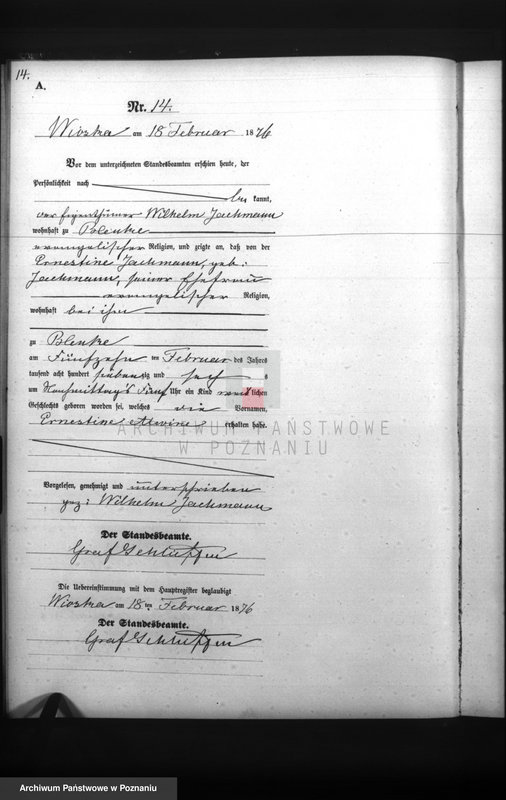 14.
A.
Nr. 14.
Wioska am 18 Februar 1876
Vor dem unterzeichneten Standesbeamten erschien heute, der
Persönlichkeit nach
be kannt,
der Eigenthümer Wilhelm Jachmann
wohnhaft zu Blenke
evangelischer Religion, und zeigte an, daß von der
Ernestine Jachmann, geb:
Jachmann, seiner Ehefrau
evangelischer Religion,
wohnhaft bei ihm
zu Blenke
am Fünfzehn ten Februar des Jahres
tausend acht hundert siebenzig und sech s
um Nachmittags Fünf Uhr ein Kind weiblichen
Geschlechts geboren worden sei, welches die Vornamen
Ernestine Alwine erhalten habe.
ARCHIWUM PAŃSTWOWE
W POZNANIU
Vorgelesen, genehmigt und unterschrieben
gez: Wilhelm Jachmann
Der Standesbeamte.
Graf Schlieffen
Die Uebereinstimmung mit dem Hauptregister beglaubigt
Wioska am 18 ten Februar 1876
Der Standesbeamte.
Graf Schlieffen
Archiwum Państwowe w Poznaniu